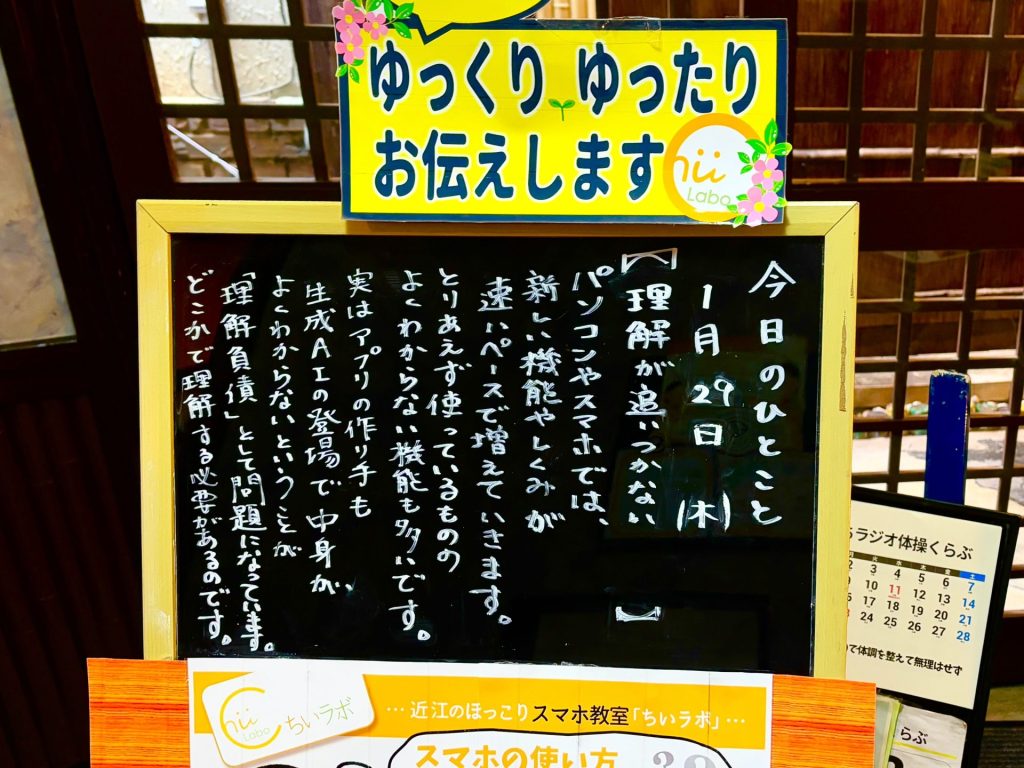 ゆっくり ゆったり
お伝えします
Chii
Labo
今日のひとこと
1月29日(木)
【理解が追いつかない】
パソコンやスマホでは、
新しい機能やしくみが
速いペースで増えていきます。
とりあえず使っているものの
よくわからない機能も多いです。
実はアプリの作り手も
生成AIの登場で中身が、
よくわからないということが
「理解負債」として問題になっています。
どこかで理解する必要があるのです。
Chii
Labo
ちいラボ
…近江のほっこりスマホ教室「ちいラボ」…
スマホの使い方
ラジオ体操くらぶ
水 木 金 土
2 3 4 5 6 7
9 10 11 12 13 14
16 17 18 19 20 21
23 24 25 26 27 28
で体調を整えて無理はせず
らぶ